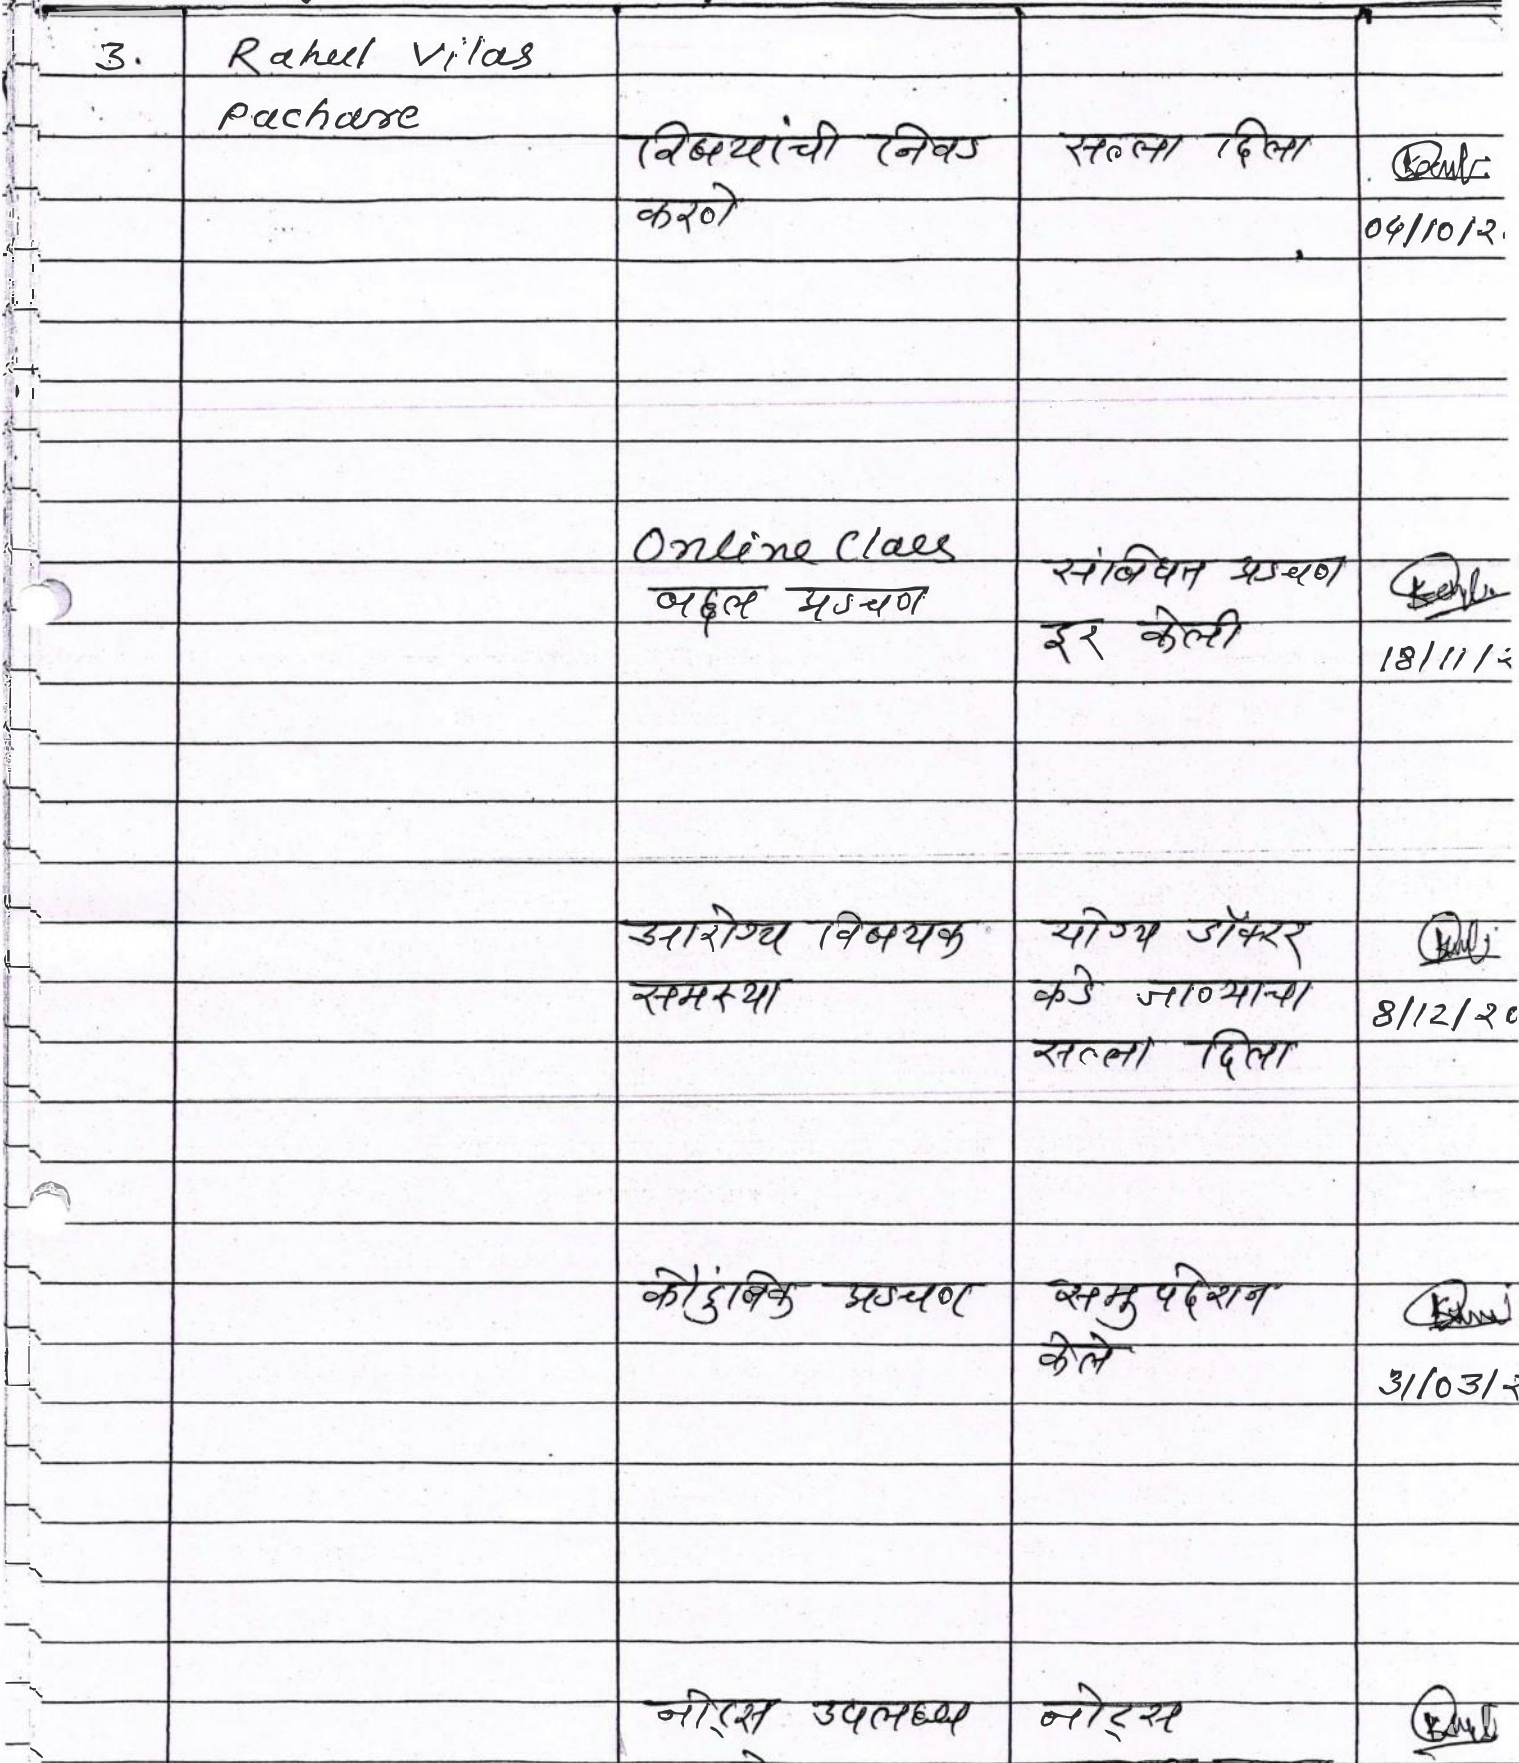 3. Rahul Vilas
Pachare
विषयांची निवड
करणे
सल्ला दिला
04/10/2
Online Class
बद्दल अडचण
संबंधित अडचण
दूर केली
18/11/2
आरोग्य विषयक
समस्या
योग्य डॉक्टर
कडे जाण्याचा
सल्ला दिला
8/12/20
कौटुंबिक अडचण
समुपदेशन
केले
31/03/2
नोट्स उपलब्ध
नोट्स